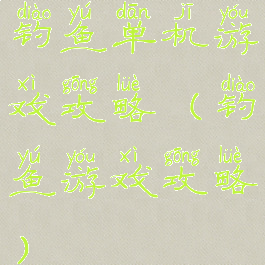 diào yú dān jī yóu
钓鱼单机游
xì gōng lüè diào
戏攻略(钓
yú yóu xì gōng lüè
鱼游戏攻略
)